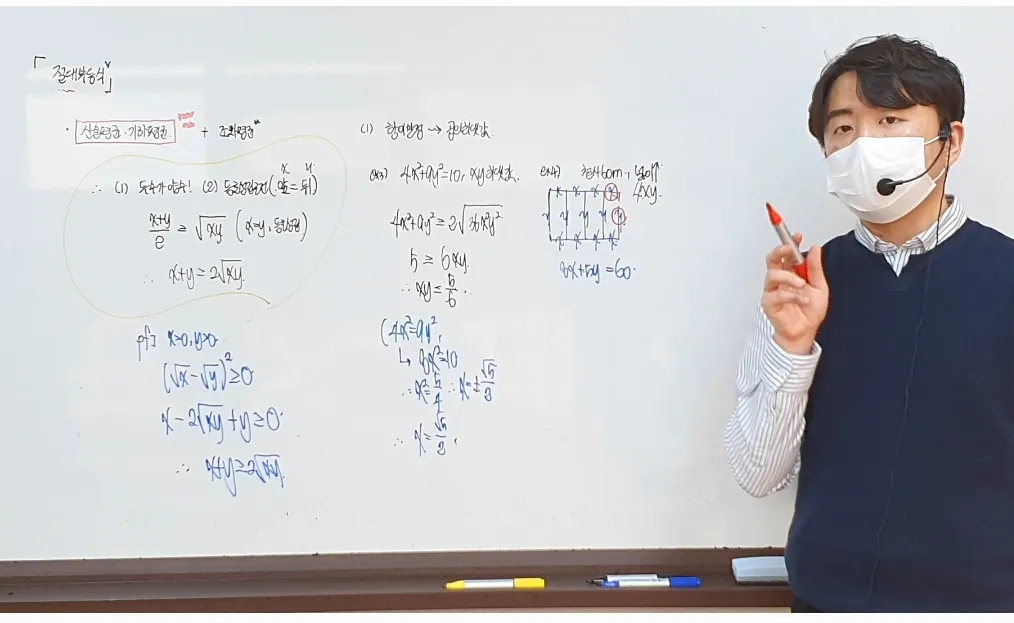 「절대부등식」
· 산술평균·기하평균 + 조화평균
∴ (1) 두수가 양수! (2) 등호성립조건(앞=뒤)
x y
x+y/2 ≥ √xy (x=y, 등호성립)
∴ x+y ≥ 2√xy.
pf) x>0, y>0.
(√x-√y)² ≥ 0
x-2√xy+y ≥ 0.
∴ x+y ≥ 2√xy.
(1) 합이 일정 → 곱의 최댓값.
ex3) 4x²+9y²=10, xy 최댓값.
4x²+9y² ≥ 2√36x²y²
5 ≥ 6xy.
∴ xy ≤ 5/6.
(4x²=9y²,
↳ 8x²=10
∴ x²=5/4 ∴ x=±√5/2
∴ x=√5/2.
ex4) 60m, 넓이
4xy.
x x x x
y y y y y
x x x x
8x+5y=60.